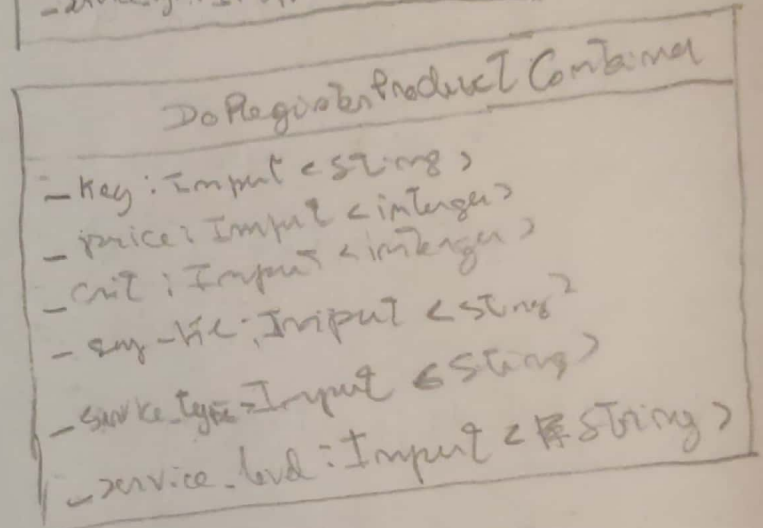 DoRegisterProductContainer
- key : Input <string>
- price : Input <interger>
- : Input <interger>
- : Input <string>
- service_type : Input <string>
- service_level : Input < string>